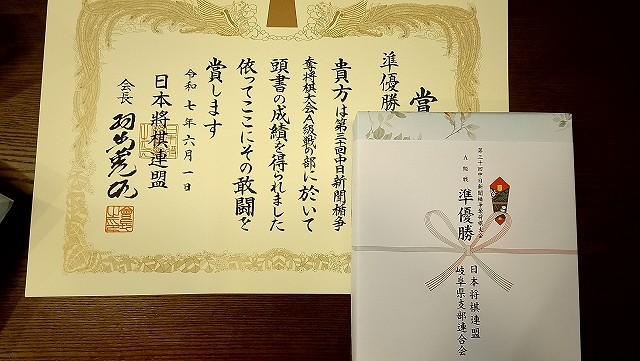 賞
準優勝
貴方は第三十回中日新聞楯争
奪将棋大会A級戦の部に於いて
頭書の成績を得られました
依ってここにその敢闘を
賞します
令和七年六月一日
日本将棋連盟
会長 羽生善治
第三十回中日新聞楯争奪将棋大会
A級戦
準優勝
日本将棋連盟
岐阜県支部連合会